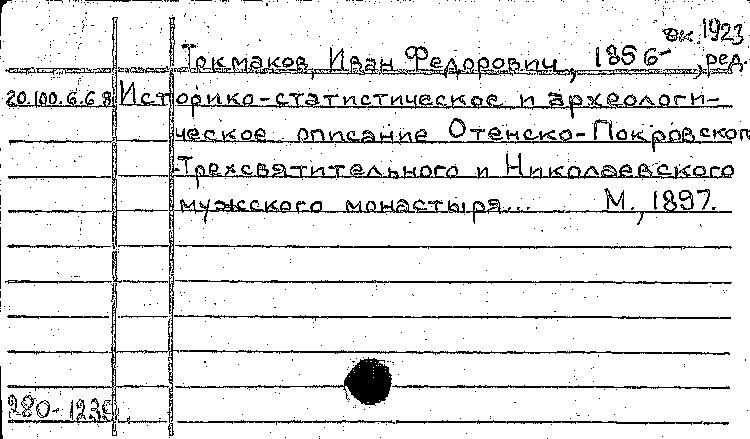 ок. 1923
Токмаков, Иван Федорович, 1856- , ред.
20.100.6.68 Историко-статистическое и археологи-
ческое описание Отенско-Покровского
-Трехсвятительного и Николаевского
мужского монастыря... М., 1897.
280-1239